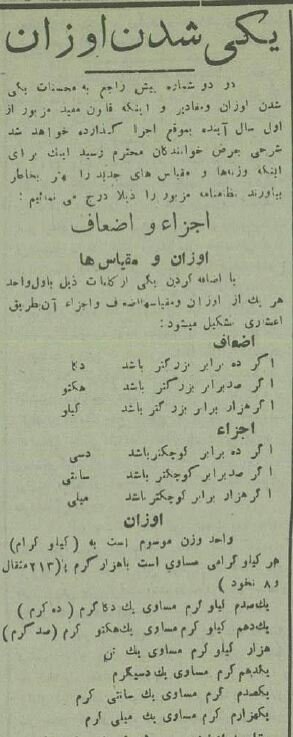 یکی شدن اوزان
در دو شماره پیش راجع به محسنات یکی
شدن اوزان ومقادیر و اینکه قانون مفید مزبور از
اول سال آینده بموقع اجرا گذارده خواهد شد
شرحی بعرض خوانندگان محترم رسید اینك برای
اینکه وزنها و مقیاس های جدید را بهتر بخاطر
بیاورند نظامنامه مزبور را ذیلا درج می نمائیم :
اجزاء و اضعاف
اوزان و مقیاس ها
با اضافه کردن یکی از کلمات ذیل باول واحد
هر یك از اوزان ومقیاسها اضعاف واجزاء آن بطریق
اعشاری تشکیل میشود :
اضعاف
اگر ده برابر بزرگتر باشد دکا
اگر صد برابر بزرگتر باشد هکتو
اگر هزار برابر بزرگتر باشد کیلو
اجزاء
اگر ده برابر کوچکتر باشد دسی
اگر صد برابر کوچکتر باشد سانتی
اگر هزار برابر کوچکتر باشد میلی
اوزان
واحد وزن موسوم است به ( کیلو گرام )
هر کیلو گرامی مساوی است باهزار گرم یا (۲۱۳ مثقال
و ۸ نخود )
یکصدم کیلو گرم مساوی یك دکا گرم ( ده گرم )
یکدهم کیلو گرم مساوی یك هکتو گرم (صد گرم)
هزار کیلو گرم مساوی یك تن
یکدهم گرم مساوی یك دسیگرم
یکصدم گرم مساوی یك سانتی گرم
یکهزارم گرم مساوی یك میلی گرم